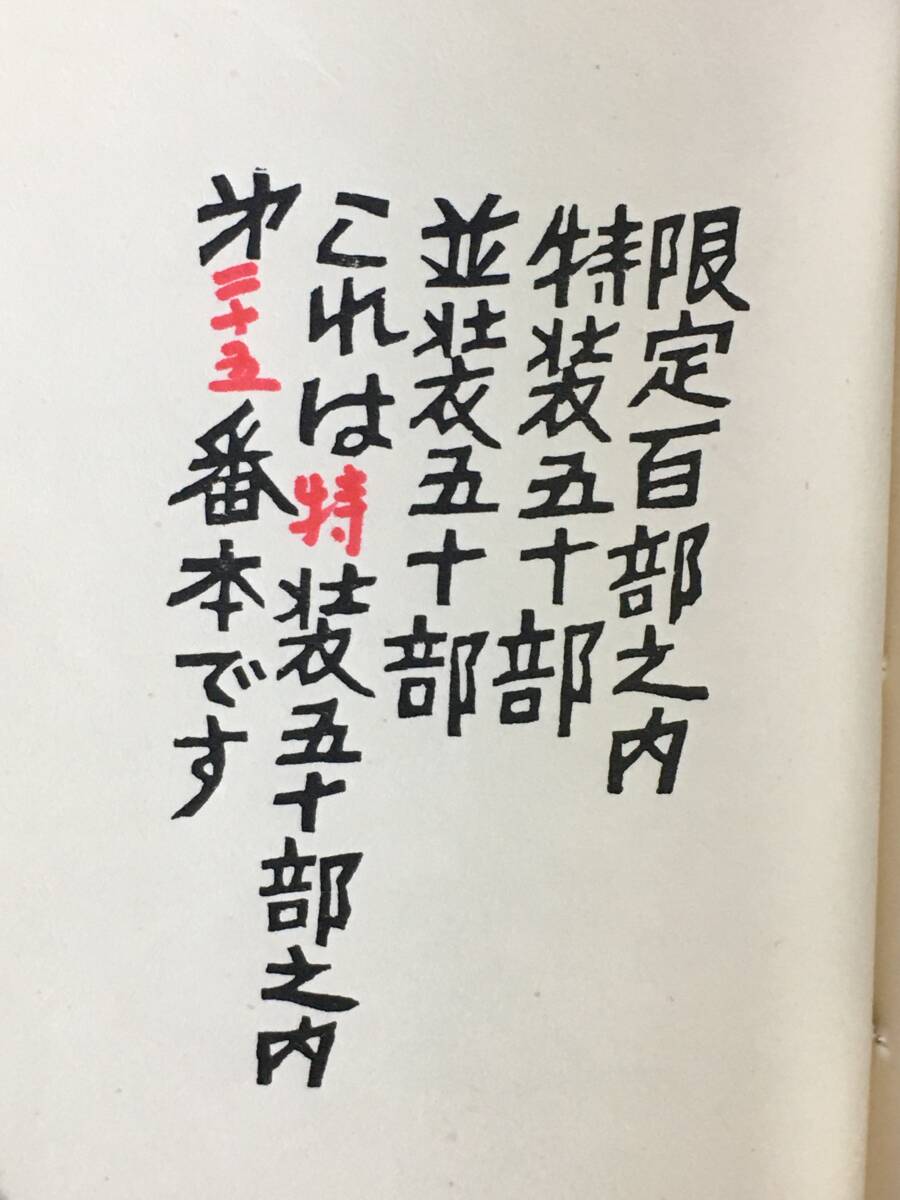 限定百部之内
特装五十部
並装五十部
これは特装五十部之内
㐧二十五番本です